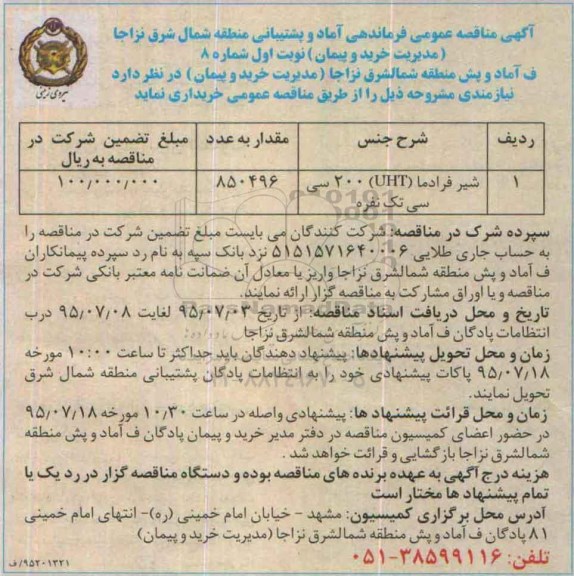 آگهی مناقصه عمومی فرماندهی آماد و پشتیبانی منطقه شمال شرق نزاجا
(مدیریت خرید و پیمان) نوبت اول شماره ۸
ف آماد و پش منطقه شمالشرق نزاجا (مدیریت خرید و پیمان) در نظر دارد
نیازمندی مشروحه ذیل را از طریق مناقصه عمومی خریداری نماید
نیروی زمینی
ردیف شرح جنس مقدار به عدد مبلغ تضمین شرکت در
مناقصه به ریال
۱ شیر فرادما (UHT) ۲۰۰ سی ۸۵۰۴۹۶ ۱۰۰٫۰۰۰٫۰۰۰
سی تک نفره
سپرده شرک در مناقصه: شرکت کنندگان می بایست مبلغ تضمین شرکت در مناقصه را
به حساب جاری طلایی ۵۱۵۱۵۷۱۶۴۰۰۰۶ نزد بانک سپه به نام رد سپرده پیمانکاران
ف آماد و پش منطقه شمالشرق نزاجا واریز یا معادل آن ضمانت نامه معتبر بانکی شرکت در
مناقصه و یا اوراق مشارکت به مناقصه گزار ارائه نمایند.
تاریخ و محل دریافت اسناد مناقصه: از تاریخ ۹۵٫۰۷٫۰۳ لغایت ۹۵٫۰۷٫۰۸ درب
انتظامات پادگان ف آماد و پش منطقه شمالشرق نزاجا
زمان و محل تحویل پیشنهادها: پیشنهاد دهندگان باید حداکثر تا ساعت ۱۰:۰۰ مورخه
۹۵٫۰۷٫۱۸ پاکات پیشنهادی خود را به انتظامات پادگان پشتیبانی منطقه شمال شرق
تحویل نمایند.
زمان و محل قرائت پیشنهاد ها: پیشنهادی واصله در ساعت ۱۰٫۳۰ مورخه ۹۵٫۰۷٫۱۸
در حضور اعضای کمیسیون مناقصه در دفتر مدیر خرید و پیمان پادگان ف آماد و پش منطقه
شمالشرق نزاجا بازگشایی و قرائت خواهد شد.
هزینه درج آگهی به عهده برنده های مناقصه بوده و دستگاه مناقصه گزار در رد یک یا
تمام پیشنهاد ها مختار است
آدرس محل برگزاری کمیسیون: مشهد - خیابان امام خمینی (ره)- انتهای امام خمینی
۸۱ پادگان ف آماد و پش منطقه شمالشرق نزاجا (مدیریت خرید و پیمان)
تلفن: ۳۸۵۹۹۱۱۶-۰۵۱
۹۵۲۰۱۳۲۱/ف